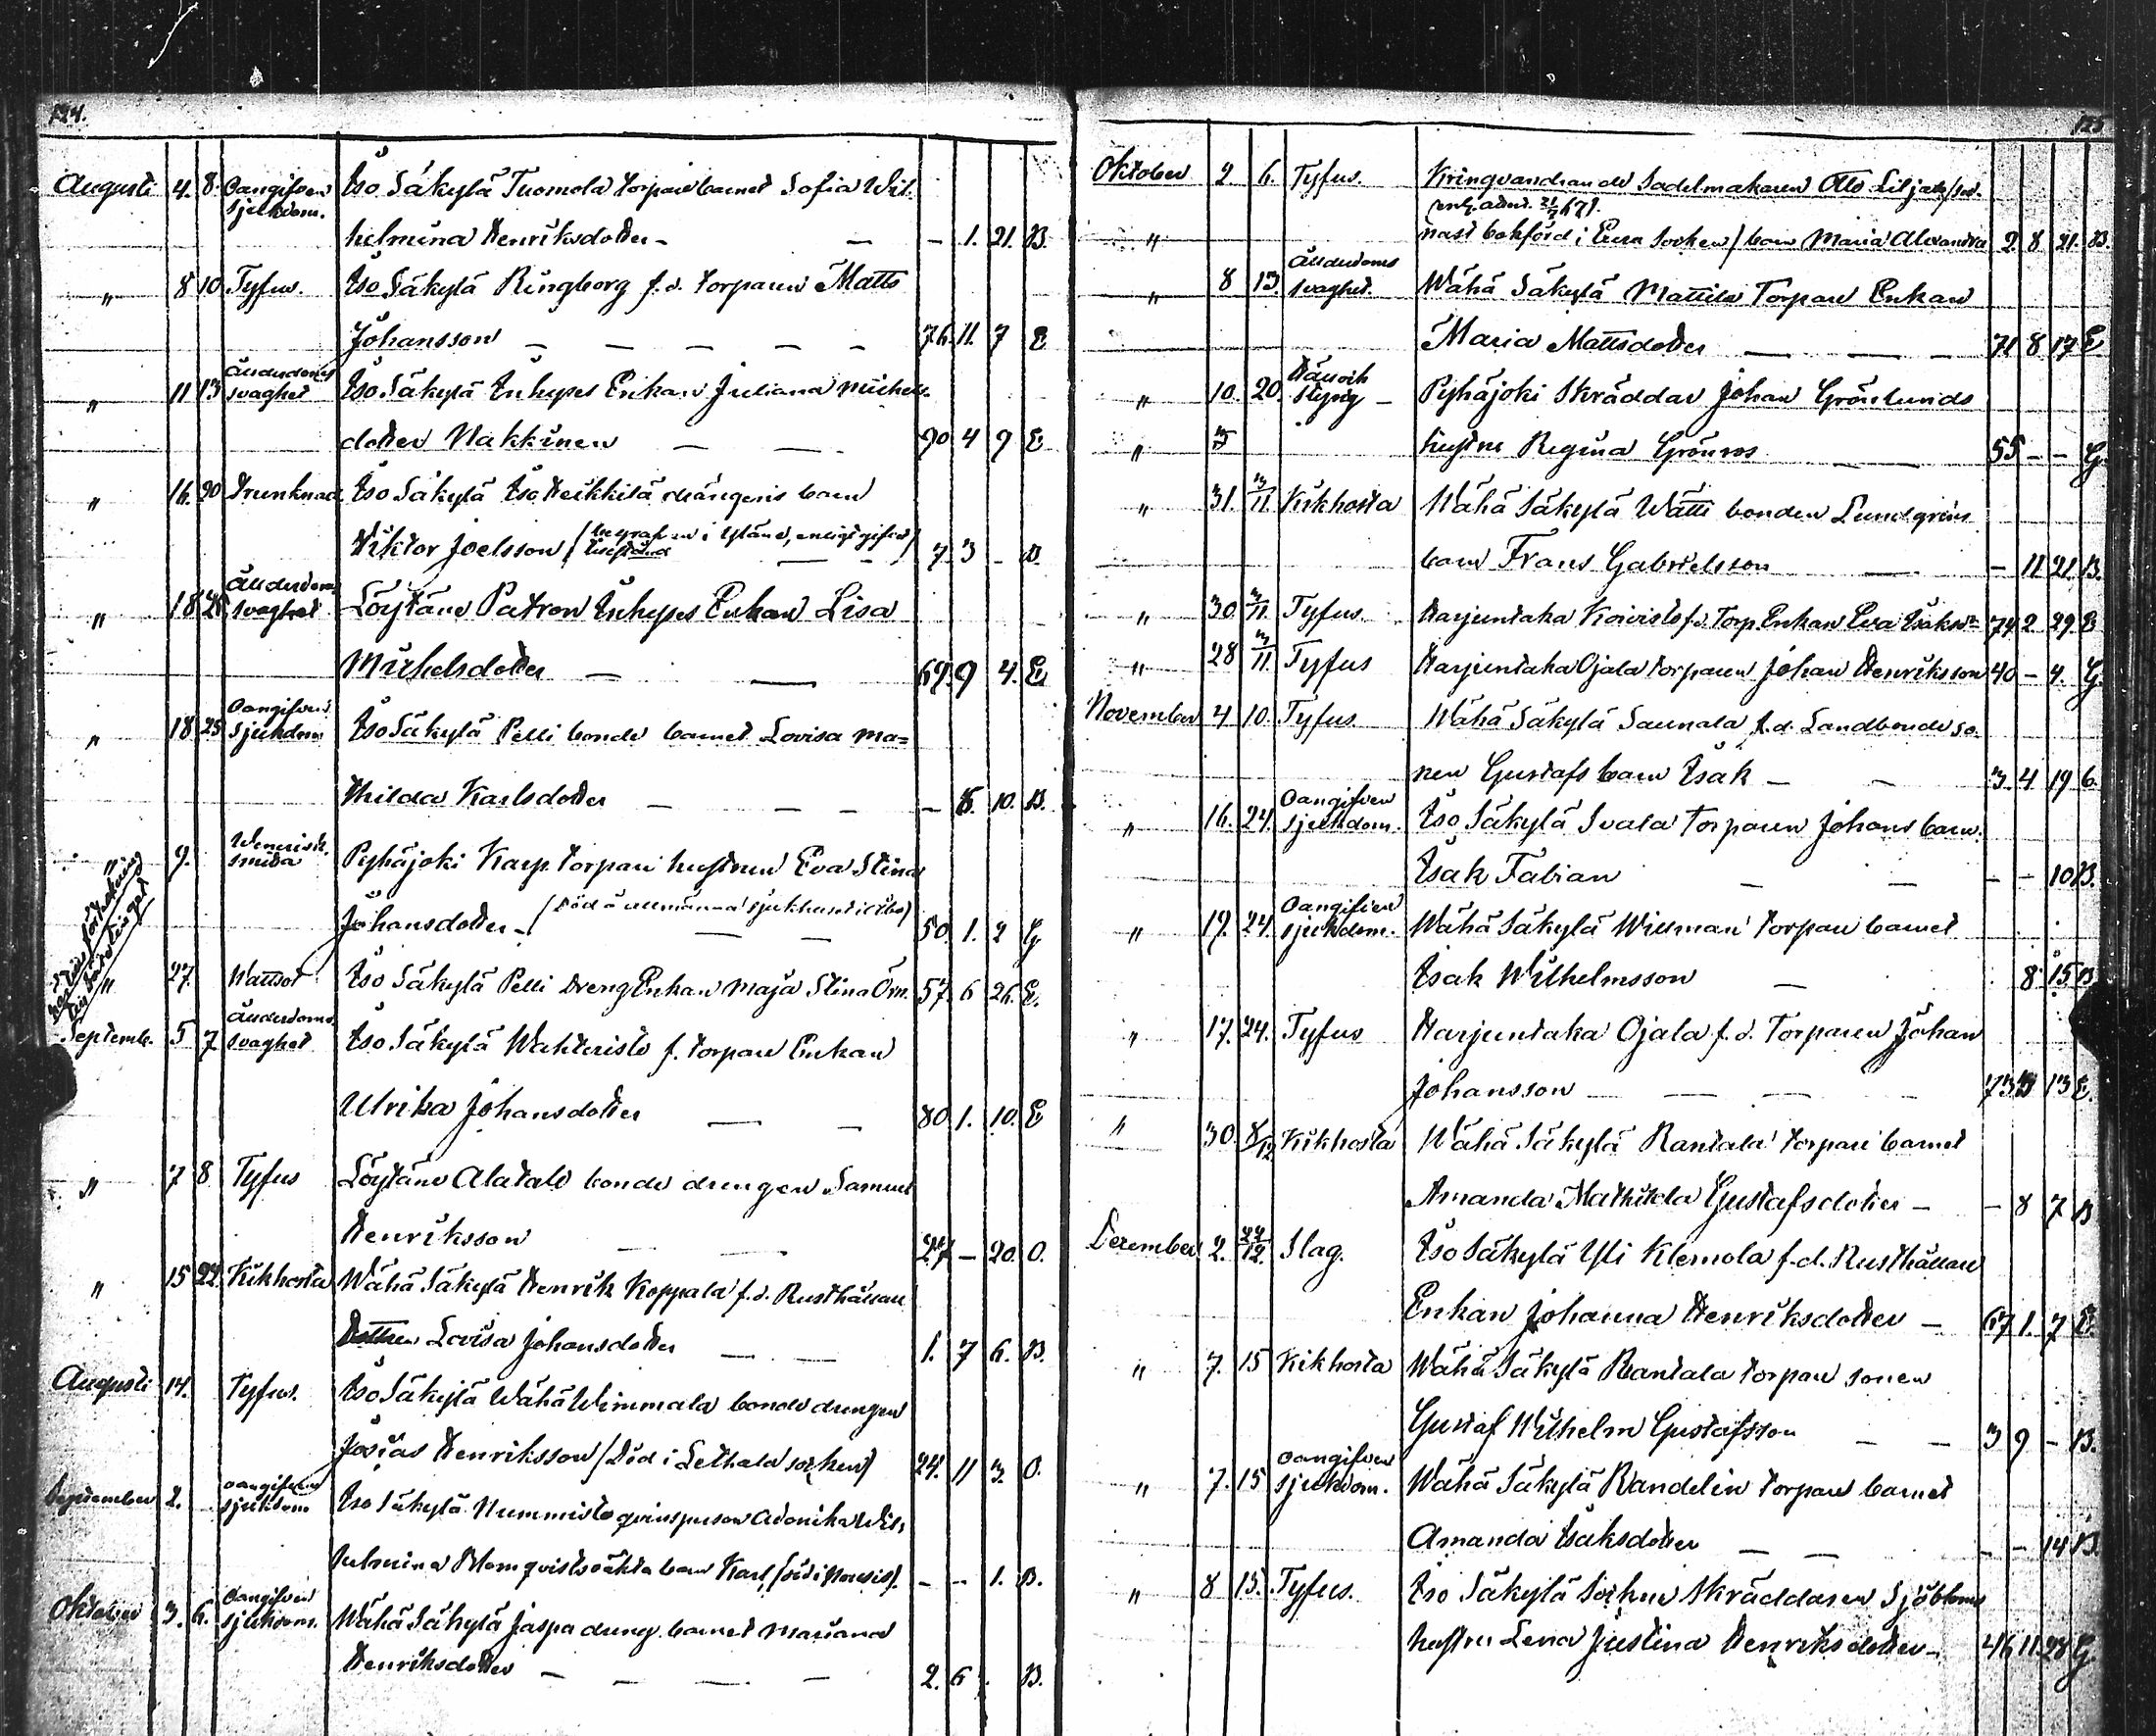 124.
Augusti 4. 8. Oangifven sjukdom. Iso Säkylä Tuomola torpare barnet Sofia Wil-
helmina Henriksdotter - - - 1. 21. B.
" 8 10 Tyfus. Iso Säkylä Ringborg f. d. torparen Matts
Johansson - - - - - 76. 11. 7 E
" 11 13 Ålderdoms svaghet Iso Säkylä Inhyses Enkan Juliana Michels-
dotter Nakkinen - - 90 4 9 E
" 16. 20 Drunknad Iso Säkylä Iso Heikkilä drängens barn
Viktor Joelsson (begrafven i , enligt ) - - 7. 3 - B.
" 18 Ålderdoms svaghet Löytäne Patron Inhyses Enkan Lisa
Michelsdotter - - 69. 9 4. E
" 18 25 Oangifven sjukdom Iso Säkylä Pelli bonde barnet Lovisa Ma=
thilda Karlsdotter - - - - 10. B.
" 9. Wenerisk smitta Pyhäjoki Karp. torpare hustrun Eva Stina
Johansdotter - (Död å allmänna sjukhuset i Åbo) - - 50. 1. 2 G
" 27. Wattsot Iso Säkylä Pelli Dreng Enkan Maja Stina Örn. 57. 6 26. E.
Septemb. 5 7 Ålderdoms svaghet Iso Säkylä Wahteristo f. torpare Enkan
Ulrika Johansdotter - - 80. 1. 10. E
" 7 8 Tyfus Löytäne Alatalo bonde drengen Samuel
Henriksson - - 27 - 20. O.
" 15 22. Kikhosta Wähä Säkylä Henrik Koppala f. d. Rusthållare
Lovisa Johansdotter - - 1. 7 6. B.
Augusti 14. Tyfus. Iso Säkylä Wähä Wimmala bonde drengen
Josias Henriksson (Död i Lethala socken) 24. 11 3. O.
September 2. Oangifven sjukdom Iso Säkylä Nummisto qvinsperson Wil-
helmina Blomqvists oäkta barn Karl, (död i Nousis). - - 1. B.
Oktober 3. 6. Oangifven sjukdom. Wähä Säkylä Jaspa dreng. barnet Mariana
Henriksdotter - - - - 2. 6 . B.
125
Oktober 2 6. Tyfus. Kringvandrande Sadelmakaren Otto
" nast bokförd i Eura socken) barn Maria Alexandra 2 8 21. B.
" 8 13. Ålderdoms svaghet. Wähä Säkylä Mattila Torpare Enkan
Maria Mattsdotter - - - 71 8 17 E
" 10. 20. Håll och styng - Pyhäjoki Skräddar Johan Grönlunds
" hustru Regina Grönroos - - 55 - - G.
" 31. 3/11. Kikhosta Wähä Säkylä Watti bonden Lundgrens
barn Frans Gabrielsson - - 11 21 B.
" 30. 3/11. Tyfus. Harjuntaka Koivisto f. d. Torp. Enkan Eva Isaksdr 74 2 29. E
" 28 3/11. Tyfus Harjuntaka Ojala torparen Johan Henriksson 40 - 4. G.
November 4 10. Tyfus. Wähä Säkylä Saunala f. d. Landbonde so-
nen Gustafs barn Isak - - 3. 4 19 B.
" 16. 24. Oangifven sjukdom. Iso Säkylä Svala torparen Johans barn.
Isak Fabian - - - - 10 B.
" 19. 24. Oangifven sjukdom. Wähä Säkylä Willman torpare barnet
Isak Wilhelmsson - 8 15 B
" 17. 24. Tyfus Harjuntaka Ojala f. d. Torparen Johan
Johansson - - - - 73 13 E.
" 30. 8/12 Kikhosta Wähä Säkylä Rantala torpare barnet
Amanda Mathilda Gustafsdotter - - 8 7 B
December 2. Slag. Iso Säkylä Yli Klemola f. d. Rusthållare
Enkan Johanna Henriksdotter - 67 1. 7 E.
" 7. 15 Kikhosta Wähä Säkylä Rantala torpare sonen
Gustaf Wilhelm Gustafsson - - 3 9 - B.
" 7. 15 Oangifven sjukdom. Wähä Säkylä Randelin torpare barnet
Amanda Isaksdotter - - - - 14 B.
" 8 15. Tyfus. Iso Säkylä Socken Skräddaren Sjöbloms
hustru Lena Justina Henriksdotter - 46 11 28 G.